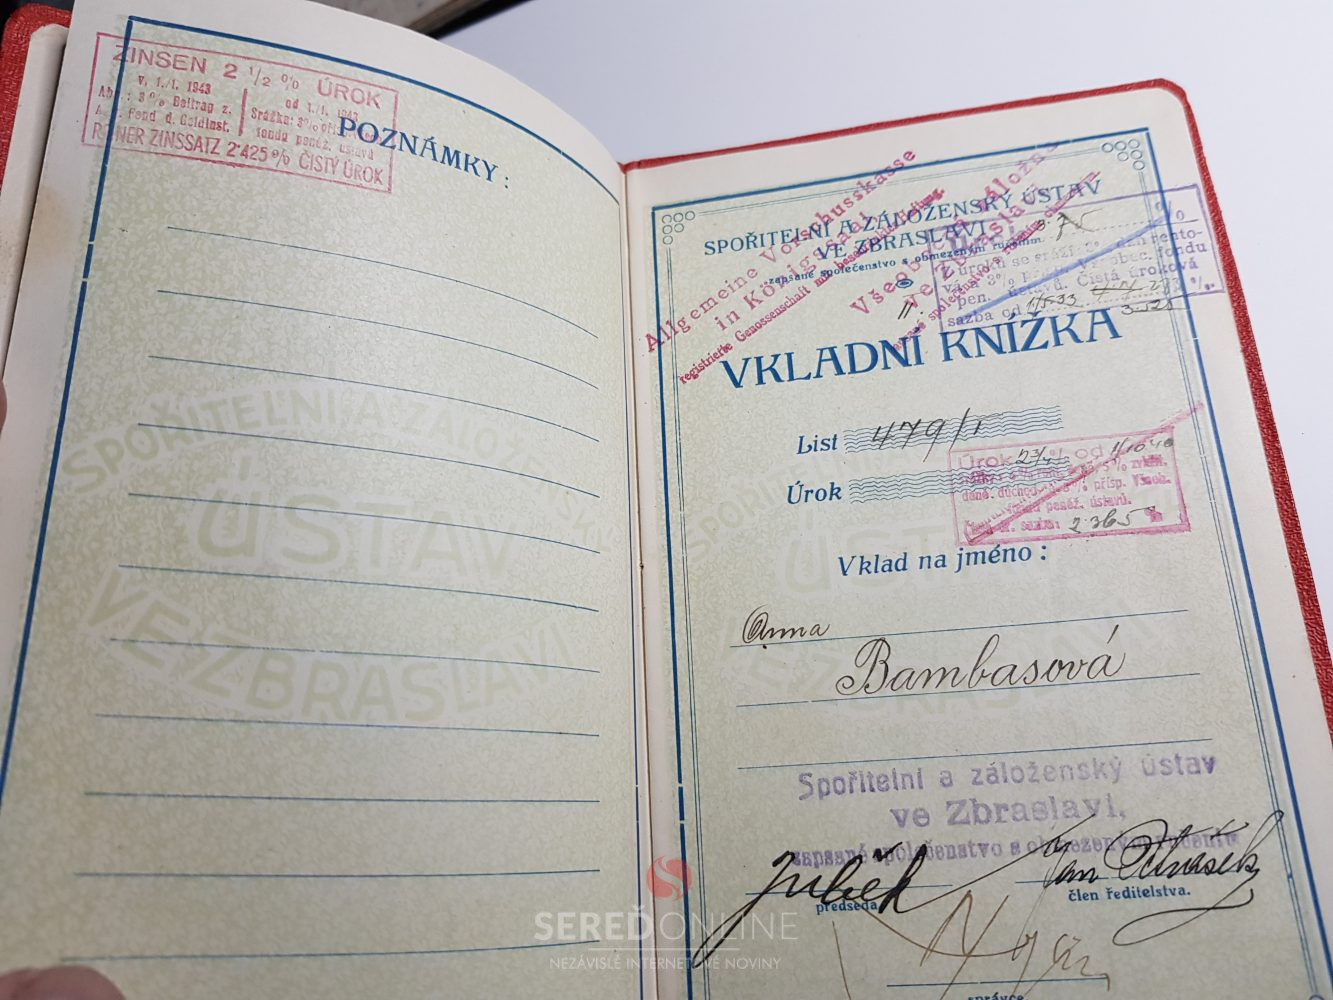 ZINSEN 2 1/2 % ÚROK
v. 1./1. 1943
od 1./1. 1943
3% Beitrag z.
Srážka: 3%
Fond d. Geldinst.
fondu peněž. ústavů
REINER ZINSSATZ 2·425% ČISTÝ ÚROK
POZNÁMKY:
SPOŘITELNÍ A ZÁLOŽENSKÝ
ÚSTAV
VE ZBRASLAVI
SPOŘITELNÍ A ZÁLOŽENSKÝ ÚSTAV
VE ZBRASLAVI
zapsané společenstvo s obmezeným ručením.
Allgemeine Vorschusskasse
in Königsaal
registrierte Genossenschaft mit beschränkter Haftung.
Všeobecná záložna
ve Zbraslavi
Z úroků se sráží
fondu
pen. ústavů. Čistá úroková
sazba od
VKLADNÍ KNÍŽKA
List 479/1
Úrok
Úrok 2 3/4 % od 1/10 40
přísp. Všeob.
peněž. ústavů.
sazba: 2·365 %
Vklad na jméno:
Anna
Bambasová
Spořitelní a záloženský ústav
ve Zbraslavi,
zapsané společenstvo s obmezeným ručením
předseda
člen ředitelstva.
správce
SEREĎONLINE
NEZÁVISLÉ INTERNETOVÉ NOVINY